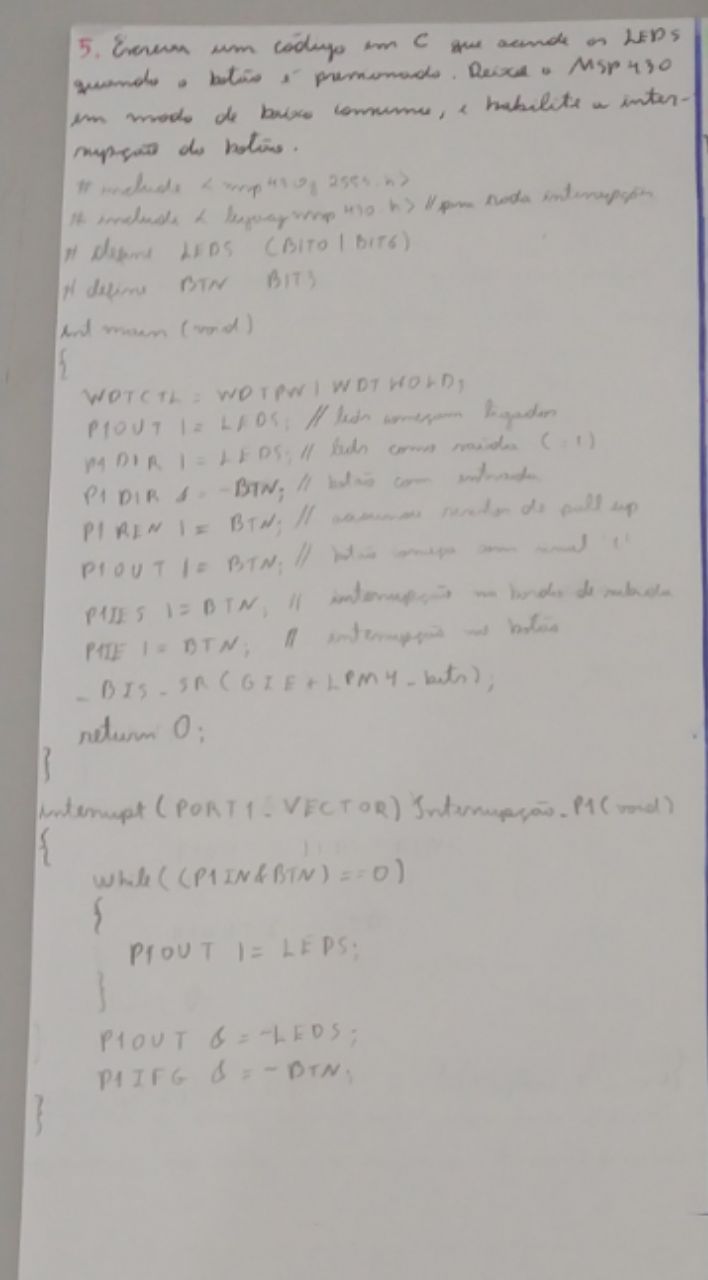 5. Escreva um código em C que acende os LEDS
quando o botão é pressionado. Deixe o MSP430
em modo de baixo consumo, e habilite a inter-
rupção do botão.
# include <msp430g2553.h>
# include <legacymsp430.h> // para rodar interrupção
# define LEDS (BIT0 | BIT6)
# define BTN BIT3
int main (void)
{
WDTCTL = WDTPW | WDTHOLD;
P1OUT |= LEDS; // leds começam ligados
P1DIR |= LEDS; // leds como saídas (=1)
P1DIR &= ~BTN; // botão com entrada
P1REN |= BTN; // resistor de pull up
P1OUT |= BTN; // botão começa com sinal '1'
P1IES |= BTN; // interrupção na borda de subida
P1IE |= BTN; // interrupção no botão
_BIS_SR(GIE + LPM4_bits);
return 0;
}
interrupt (PORT1_VECTOR) Interrupção_P1(void)
{
while((P1IN&BTN) == 0)
{
P1OUT |= LEDS;
}
P1OUT &= ~LEDS;
P1IFG &= ~BTN;
}